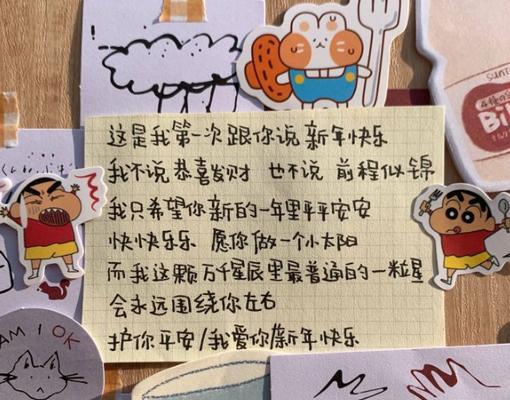 这是我第一次跟你说 新年快乐
我不说 恭喜发财 也不说 前程似锦
我只希望你新的一年里平平安安
快快乐乐 愿你做一个小太阳
而我这颗万千星辰里最普通的一粒星
会永远围绕你左右
护你平安/我爱你/新年快乐
AM I OK